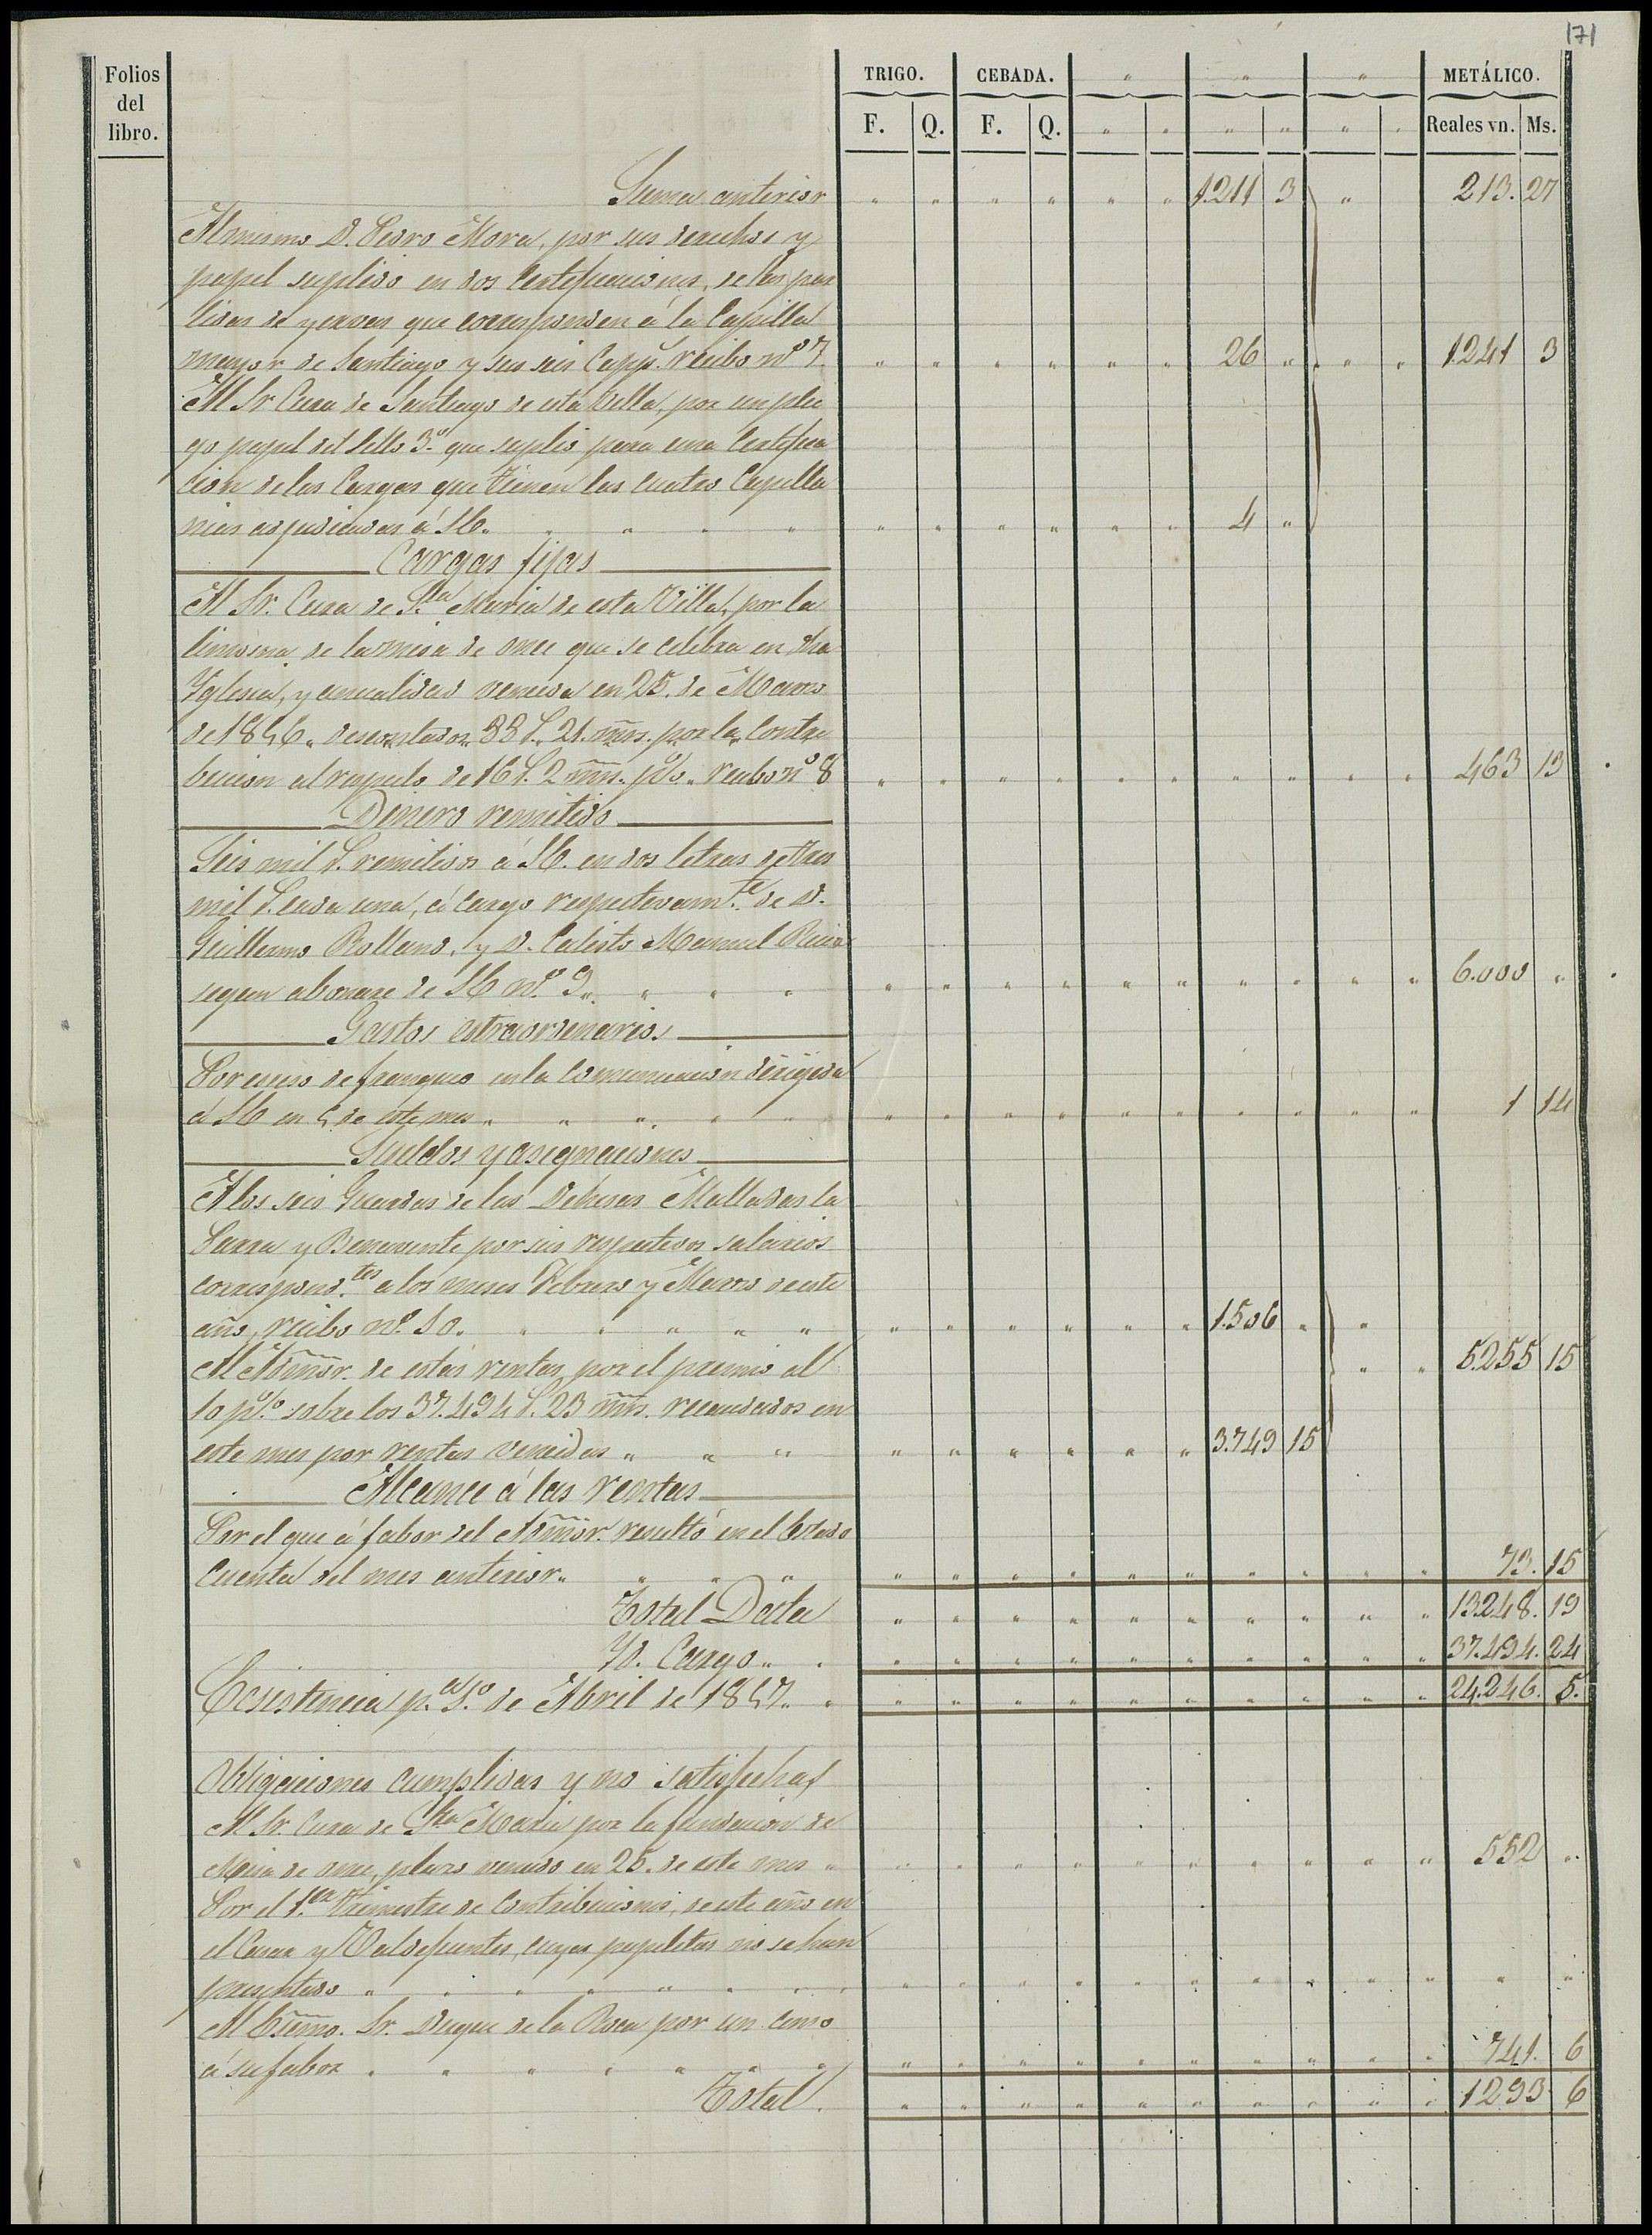 171
Folios del libro.
TRIGO. CEBADA. " " " METÁLICO.
F. Q. F. Q. " " " " " " Reales vn. Ms.
Suma anterior " " " " " " 1.211 3 " 213. 27
Al mismo D. Pedro Mora, por sus derechos y
papel suplido en dos Certificaciones, de las par
tidas de yervas que corresponden á la Capilla
mayor de Santiago y sus seis Capp.s recibo nº 7. " " " " " " 26 " " " 1.241 3
Al Sr. Cura de Santiago de esta Villa, por un plie
go papel del Sello 3.º que suplió para una Certifica
cion de las Cargas que tienen las cuatro Capella
nias adjudicadas á S.E. " " " " " " " " " 4 "
Cargas fijas
Al Sr. Cura de S.ta Maria de esta Villa, por la
limosna de la misa de once que se celebra en dha
Yglesia, y anualidad vencida en 25. de Marzo
de 1856 " descontados 88 r.s 21. mrs. por la Contri
bucion al respecto de 16 r.s 2 mrs. p% " recibo nº 8 " " " " " " " " " " 463 13
Dinero remitido
Seis mil r.s remitidos á S.E. en dos letras de tres
mil r.s cada una, á cargo respectivam.te de D.
Guillermo Rolland, y D. Calisto Manuel Ruiz
segun abonare de S.E. nº. 9 " " " " " " " " " " " " " 6.000 "
Gastos estraordinarios
Por esceso de franqueo en la Comunicacion dirigida
á S.E. en 5 de este mes " " " " " " " " " " " " " " 1 14
Sueldos y asignaciones
A los seis Guardas de las Dehesas Malladas la
Parra y Benavente por sus respectivos salarios
correspond.tes a los meses Febrero y Marzo de este
año, recibo nº. 10. " " " " " " " " " " " 1.506 " "
Al Admor. de estas rentas, por el premio al " " 5.255 15
10 p% sobre los 37.494 r.s 23 mrs. recaudados en
este mes por rentas vencidas " " " " " " " " " 3.749 15
Alcance á las rentas
Por el que á fabor del Admor. resultó en el Estado
Cuenta del mes anterior " " " " " " " " " " " " 73. 15
Total Data " " " " " " " " " " 13.248. 19
Yd. Cargo " " " " " " " " " " " 37.494. 24
Ecsistencia p.a 1.º de Abril de 1857 " " " " " " " " " " " 24.246. 5.
Obligaciones cumplidas y no satisfechas
Al Sr. Cura de Sta Maria por la fundacion de
Misa de once, plazo vencido en 25. de este mes " " " " " " " " " " " 552 "
Por el 1.er Trimestre de Contribuciones, de este año en
el Casar y Valdefuentes, cuyas papeletas no se han
presentado " " " " " " " " " " " " " " " " "
Al Escmo. Sr. Duque de la Roca por un censo
á su fabor " " " " " " " " " " " " " " " 741. 6
Total. " " " " " " " " " " 1293 6